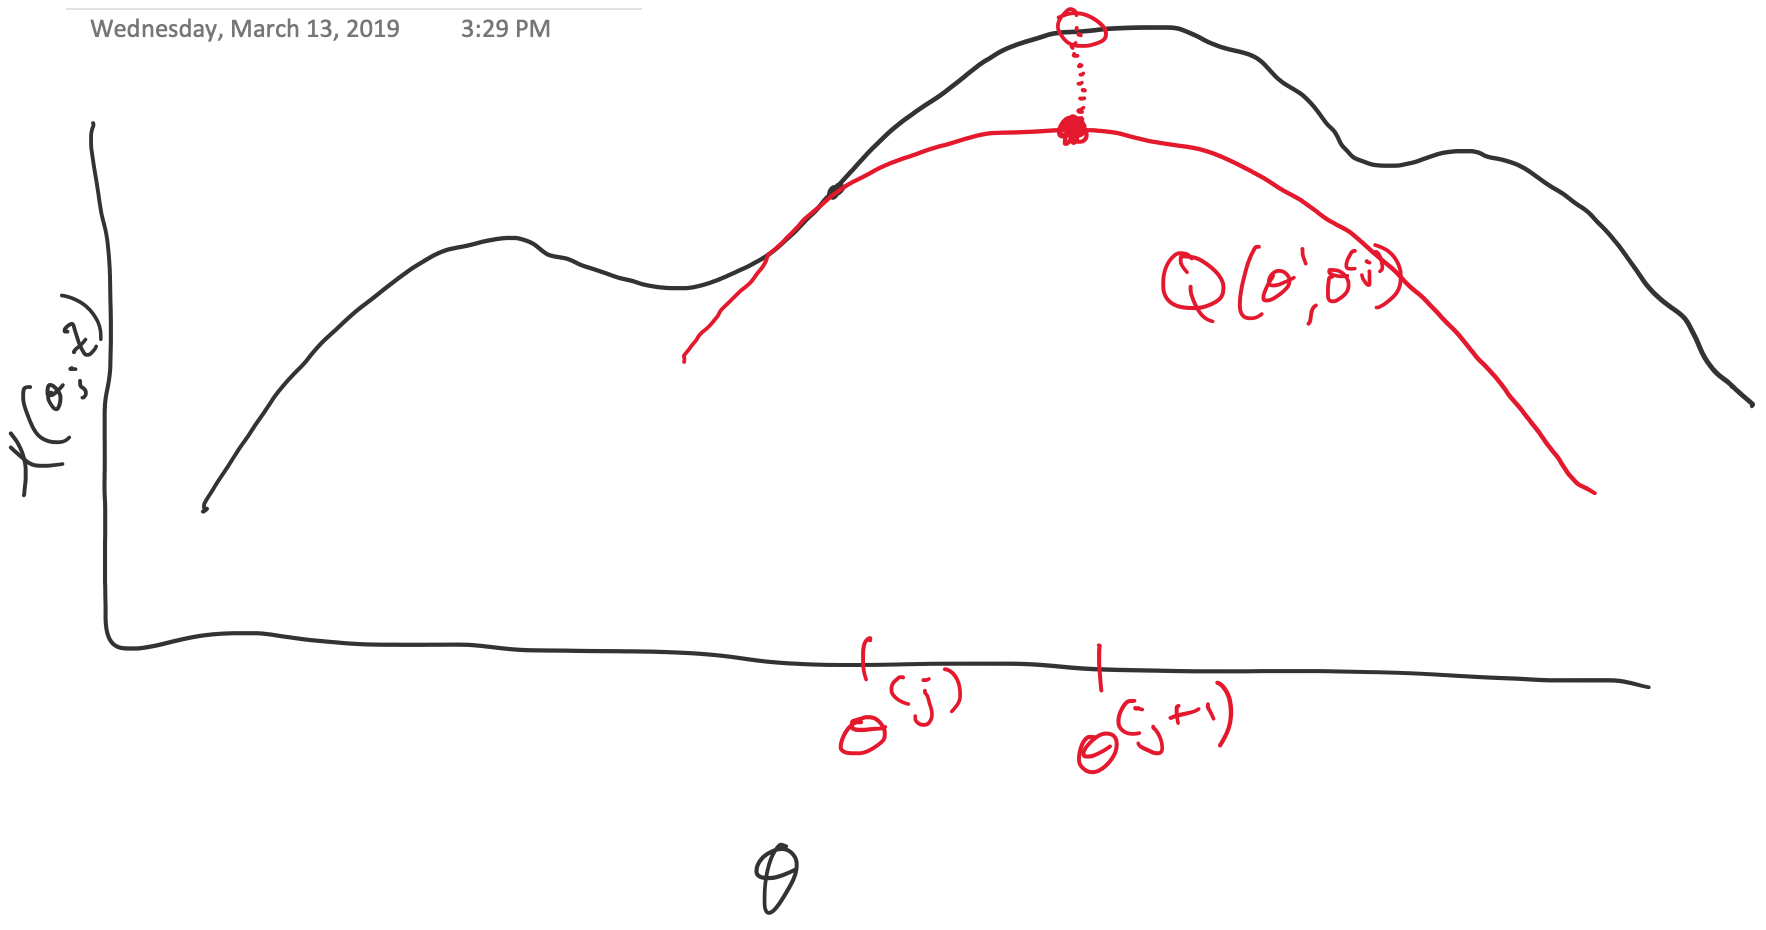 Wednesday, March 13, 2019 3:29 PM
Q(θ', θ^(j))
θ^(j)
θ^(j+1)
θ